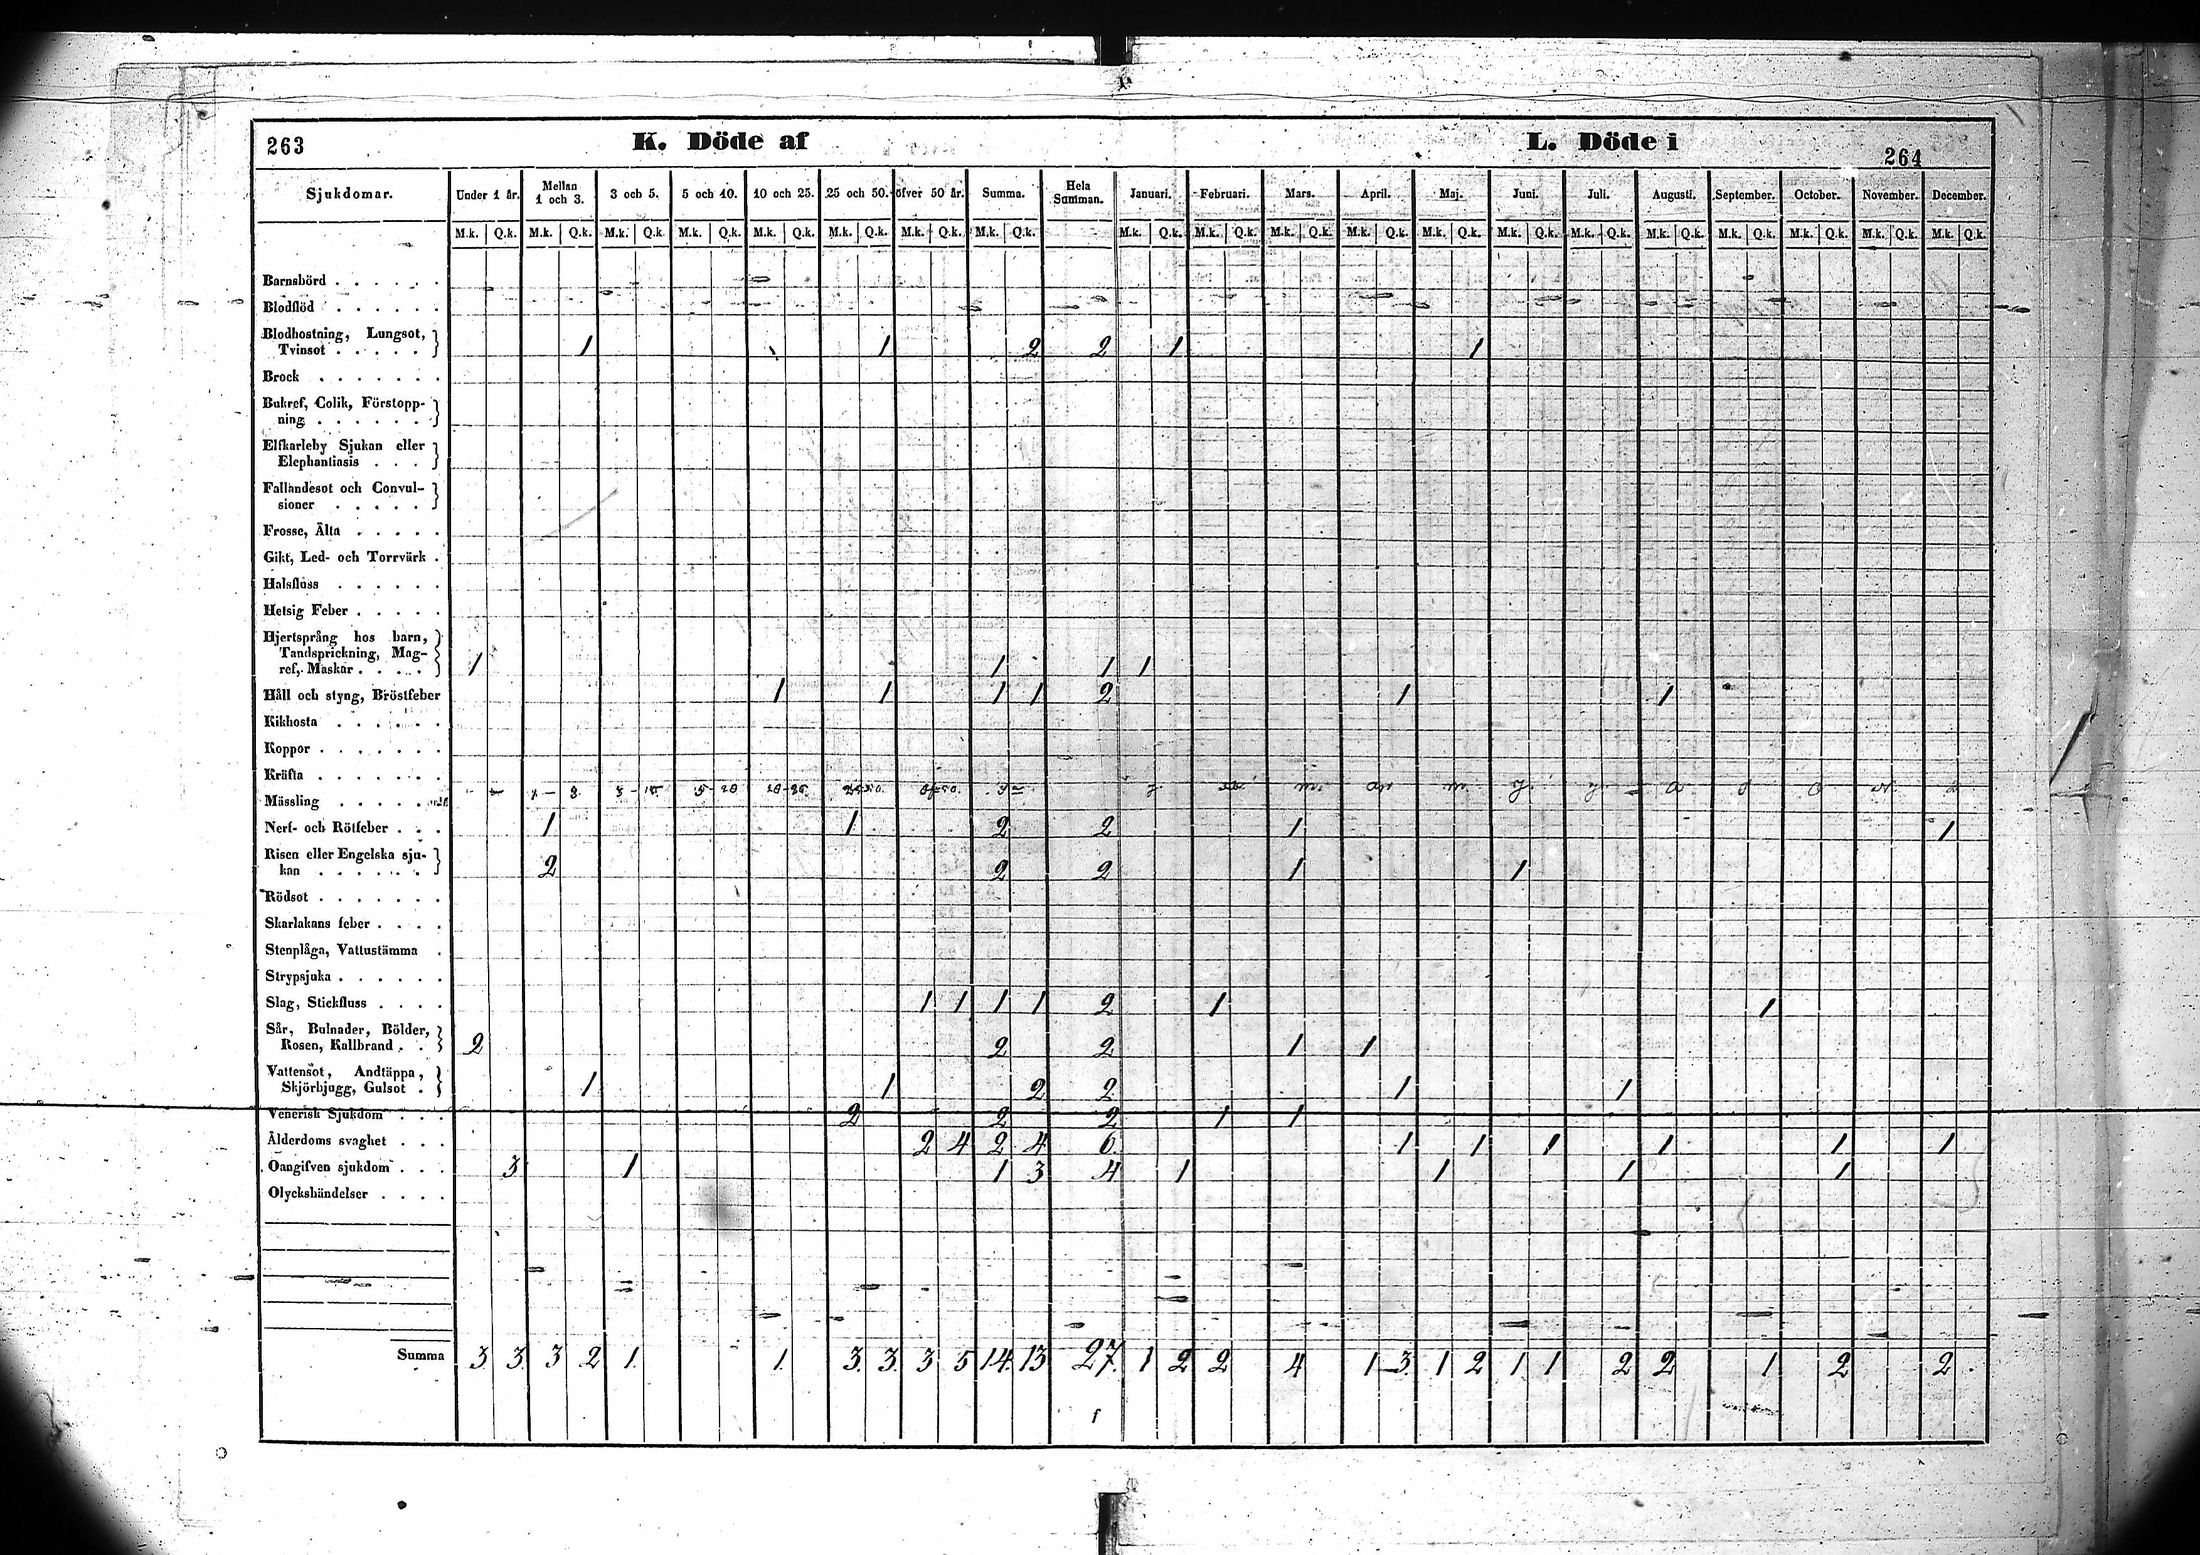 263 K. Döde af L. Döde i 264
Sjukdomar. Under 1 år. Mellan 1 och 3. 3 och 5. 5 och 10. 10 och 25. 25 och 50. öfver 50 år. Summa. Hela Summan. Januari. Februari. Mars. April. Maj. Juni. Juli. Augusti. September. October. November. December.
M.k. Q.k. M.k. Q.k. M.k. Q.k. M.k. Q.k. M.k. Q.k. M.k. Q.k. M.k. Q.k. M.k. Q.k. M.k. Q.k. M.k. Q.k. M.k. Q.k. M.k. Q.k. M.k. Q.k. M.k. Q.k. M.k. Q.k. M.k. Q.k. M.k. Q.k. M.k. Q.k. M.k. Q.k. M.k. Q.k.
Barnsbörd . . . . . .
Blodflöd . . . . . .
Blodhostning, Lungsot,
Tvinsot . . . . . 1 1 2 2 1 1
Brock . . . . . . .
Bukref, Colik, Förstopp-
ning . . . . . .
Elfkarleby Sjukan eller
Elephantiasis . . .
Fallandesot och Convul-
sioner . . . . .
Frosse, Älta . . . . .
Gikt, Led- och Torrvärk .
Halsfluss . . . . . .
Hetsig Feber . . . . .
Hjertsprång hos barn,
Tandsprickning, Mag-
ref, Maskar . . . . . 1 1 1 1
Håll och styng, Bröstfeber 1 1 1 1 2 1 1
Kikhosta . . . . . .
Koppor . . . . . . .
Kräfta . . . . . . .
Mässling . . . . .
Nerf- och Rötfeber . . . 1 1 2 2 1 1
Risen eller Engelska sju-
kan . . . . . . 2 2 2 1 1
Rödsot . . . . . . .
Skarlakans feber . . . .
Stenplåga, Vattustämma .
Strypsjuka . . . . . .
Slag, Stickfluss . . . . 1 1 1 1 2 1 1
Sår, Bulnader, Bölder,
Rosen, Kallbrand . . 2 2 2 1 1
Vattensot, Andtäppa,
Skjörbjugg, Gulsot . 1 1 2 2 1 1
Venerisk Sjukdom . . . 2 2 2 1 1
Ålderdoms svaghet . . . 2 4 2 4 6. 1 1 1 1 1 1
Oangifven sjukdom . . . 3 1 1 3 4 1 1 1 1
Olyckshändelser . . . .
Summa 3 3 3 2 1. 1. 3. 3. 3 5 14. 13 27. 1 2 2 4 1 3. 1 2 1. 1 2 2 1 2 2.